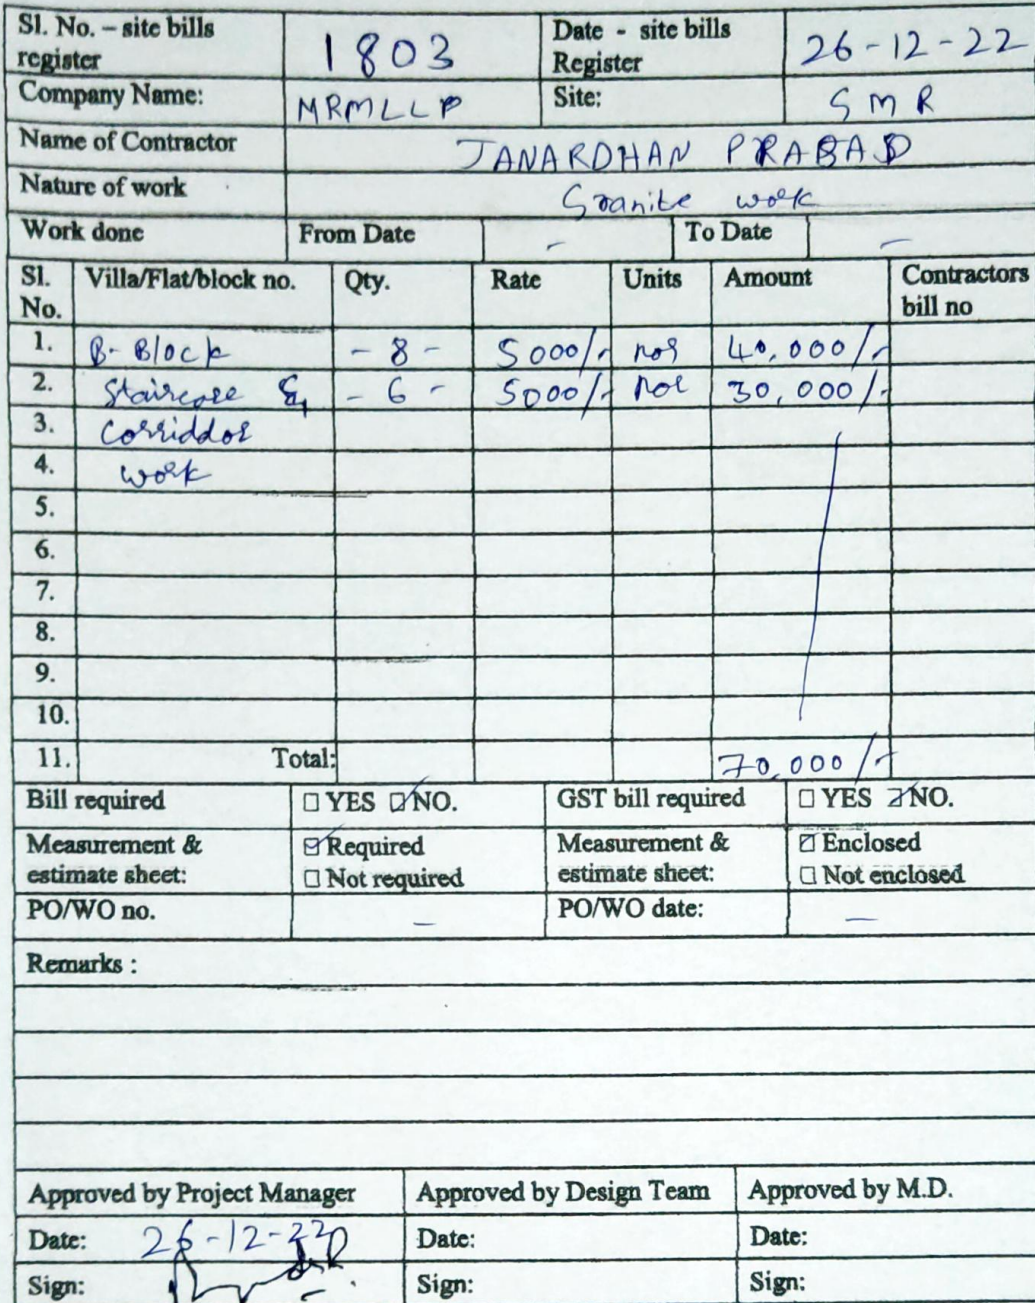 Sl. No. – site bills register 1803 Date - site bills Register 26-12-22
Company Name: MRMLLP Site: SMR
Name of Contractor JANARDHAN PRASAD
Nature of work Granite work
Work done From Date - To Date -
Sl. No. Villa/Flat/block no. Qty. Rate Units Amount Contractors bill no
1. B-Block - 8 - 5000/- nos 40,000/-
2. Staircase & - 6 - 5000/- nos 30,000/-
3. Corriddor
4. work
5.
6.
7.
8.
9.
10.
11. Total: 70,000/-
Bill required ☐ YES ☑ NO. GST bill required ☐ YES ☑ NO.
Measurement & estimate sheet: ☑ Required ☐ Not required Measurement & estimate sheet: ☑ Enclosed ☐ Not enclosed
PO/WO no. - PO/WO date: -
Remarks :
Approved by Project Manager Approved by Design Team Approved by M.D.
Date: 26-12-22 Date: Date:
Sign: Sign: Sign: